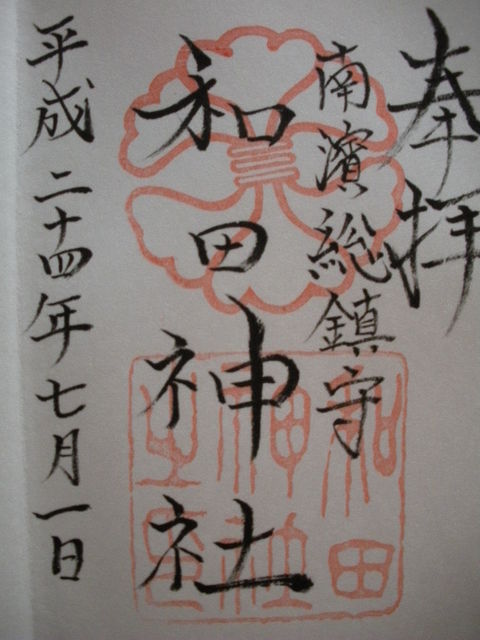 奉拝
南濱総鎮守
和田神社
平成二十四年七月一日
和田
神社